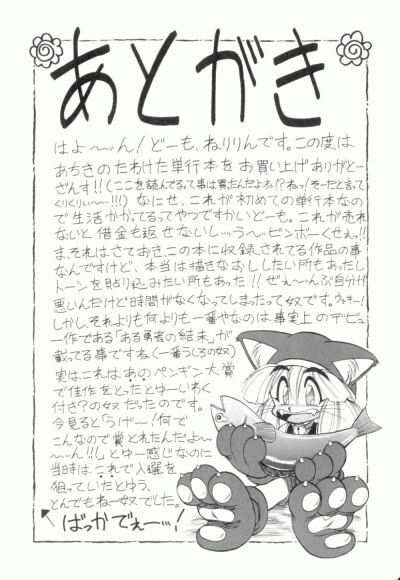 あとがき
はよ〜〜ん!どーも、ねりりんです。この度は
あちきのたわけた単行本をお買い上げありがとー
ざんす!!(ここを読んでるって事は買ったんだよね!?ねっ!そーだと言って
くりくりぃ〜!!!)なにせ、これが初めての単行本なの
で生活かかってるってやつですかいどーも。これが売れ
ないと借金も返せないし…う〜ビンボーくせぇっ!!
ま、それはさておき、この本に収録されてる作品の事
なんですけど、本当は描きなおししたい所もあったし
トーンを貼り込みたい所もあった!!ぜぇ〜んぶ自分が
悪いんだけど時間がなくなってしまったって奴です。ウッキー!
しかし、それよりも何よりも一番やなのは事実上のデビュ
ー作である「ある勇者の結末」が
載ってる事ですね(一番うしろの奴)
実はこれは、あのペンギン大賞
で佳作をとったとゆーいわく
付き?の奴だったのです。
今見ると「うげー!何で
こんなので賞とれたんだよ〜
〜〜ん!!」とゆー感じなのに
当時は、これで入選を
狙っていたとゆう、
とんでもねー奴でした。
ばっかでぇー…!